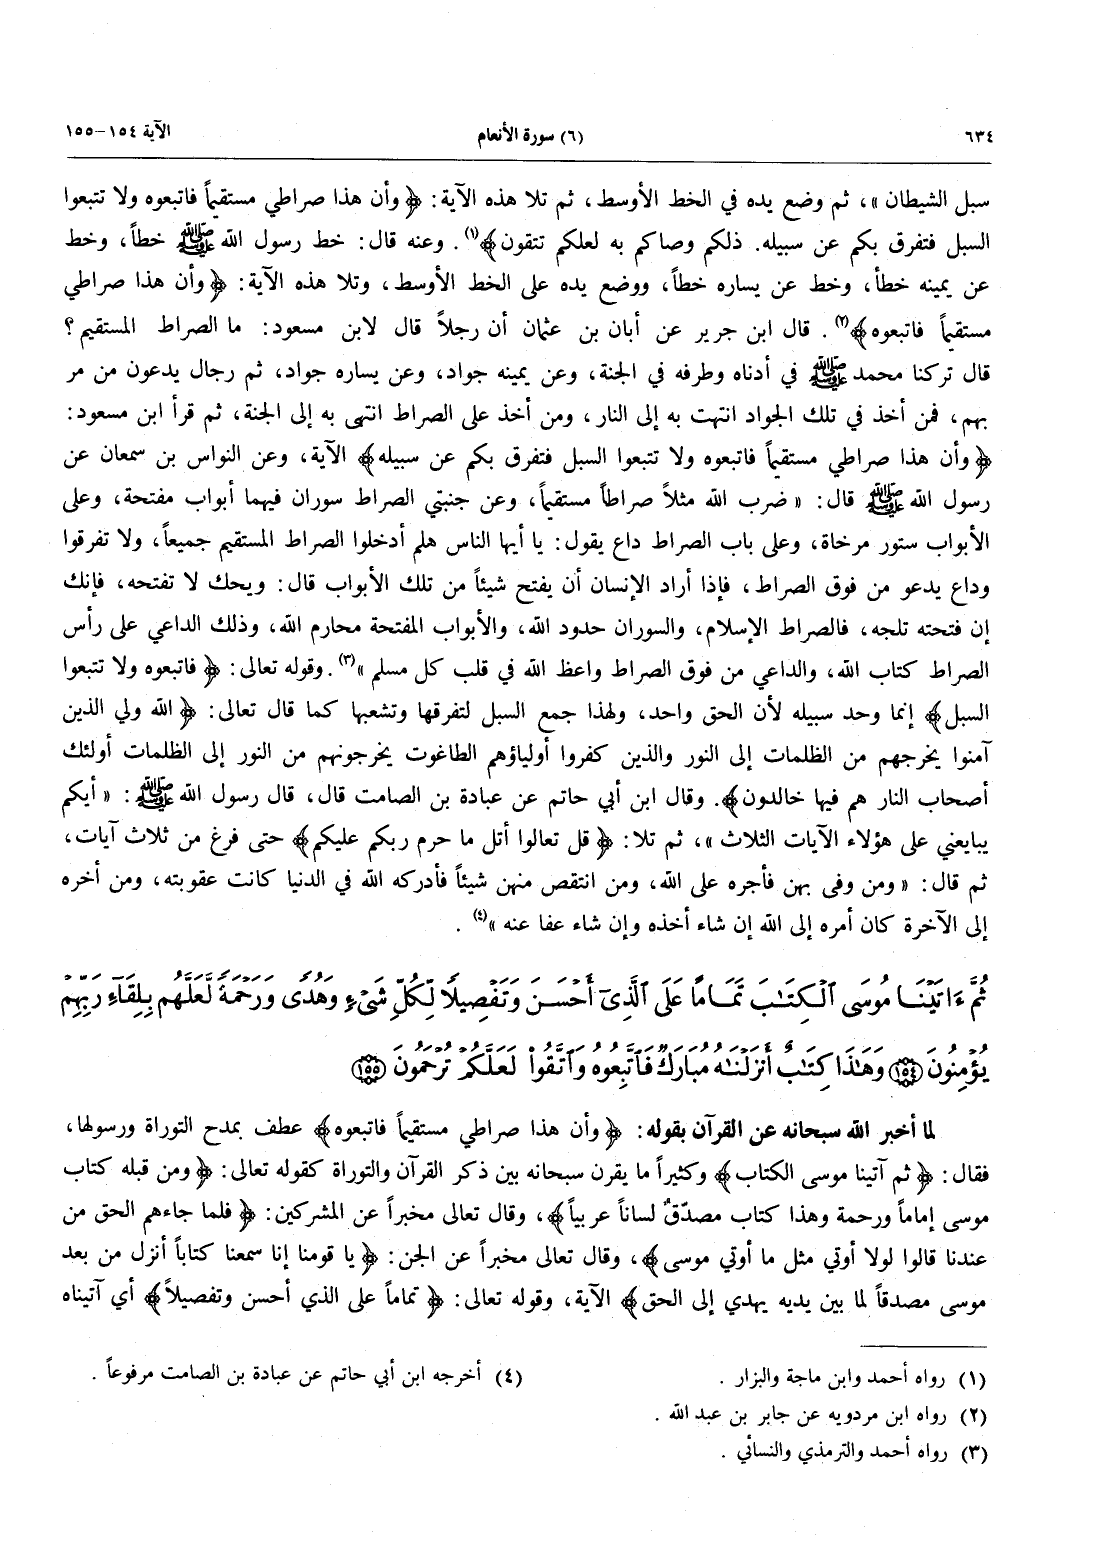 ٦٣٤ (٦) سورة الأنعام الآية ١٥٤-١٥٥
سبل الشيطان »، ثم وضع يده في الخط الأوسط، ثم تلا هذه الآية: ﴿وأن هذا صراطي مستقيماً فاتبعوه ولا تتبعوا
السبل فتفرق بكم عن سبيله. ذلكم وصاكم به لعلكم تتقون﴾(١). وعنه قال: خط رسول الله ﷺ خطاً، وخط
عن يمينه خطأ، وخط عن يساره خطاً، ووضع يده على الخط الأوسط، وتلا هذه الآية: ﴿وأن هذا صراطي
مستقيماً فاتبعوه﴾(٢). قال ابن جرير عن أبان بن عثمان أن رجلاً قال لابن مسعود: ما الصراط المستقيم؟
قال تركنا محمد ﷺ في أدناه وطرفه في الجنة، وعن يمينه جواد، وعن يساره جواد، ثم رجال يدعون من مر
بهم، فمن أخذ في تلك الجواد انتهت به إلى النار، ومن أخذ على الصراط انتهى به إلى الجنة، ثم قرأ ابن مسعود:
﴿وأن هذا صراطي مستقيماً فاتبعوه ولا تتبعوا السبل فتفرق بكم عن سبيله﴾ الآية، وعن النواس بن سمعان عن
رسول الله ﷺ قال: « ضرب الله مثلاً صراطاً مستقيماً، وعن جنبتي الصراط سوران فيهما أبواب مفتحة، وعلى
الأبواب ستور مرخاة، وعلى باب الصراط داع يقول: يا أيها الناس هلم أدخلوا الصراط المستقيم جميعاً، ولا تفرقوا
وداع يدعو من فوق الصراط، فإذا أراد الإنسان أن يفتح شيئاً من تلك الأبواب قال: ويحك لا تفتحه، فإنك
إن فتحته تلجه، فالصراط الإسلام، والسوران حدود الله، والأبواب المفتحة محارم الله، وذلك الداعي على رأس
الصراط كتاب الله، والداعي من فوق الصراط واعظ الله في قلب كل مسلم »(٣). وقوله تعالى: ﴿فاتبعوه ولا تتبعوا
السبل﴾ إنما وحد سبيله لأن الحق واحد، ولهذا جمع السبل لتفرقها وتشعبها كما قال تعالى: ﴿الله ولي الذين
آمنوا يخرجهم من الظلمات إلى النور والذين كفروا أولياؤهم الطاغوت يخرجونهم من النور إلى الظلمات أولئك
أصحاب النار هم فيها خالدون﴾. وقال ابن أبي حاتم عن عبادة بن الصامت قال، قال رسول الله ﷺ: « أيكم
يبايعني على هؤلاء الآيات الثلاث »، ثم تلا: ﴿قل تعالوا أتل ما حرم ربكم عليكم﴾ حتى فرغ من ثلاث آيات،
ثم قال: « ومن وفى بهن فأجره على الله، ومن انتقص منهن شيئاً فأدركه الله في الدنيا كانت عقوبته، ومن أخره
إلى الآخرة كان أمره إلى الله إن شاء أخذه وإن شاء عفا عنه »(٤).
ثُمَّ ءَاتَيْنَا مُوسَى ٱلْكِتَٰبَ تَمَامًا عَلَى ٱلَّذِىٓ أَحْسَنَ وَتَفْصِيلًا لِّكُلِّ شَىْءٍ وَهُدًى وَرَحْمَةً لَّعَلَّهُم بِلِقَآءِ رَبِّهِمْ
يُؤْمِنُونَ ﴿١٥٤﴾ وَهَٰذَا كِتَٰبٌ أَنزَلْنَٰهُ مُبَارَكٌ فَٱتَّبِعُوهُ وَٱتَّقُوا۟ لَعَلَّكُمْ تُرْحَمُونَ ﴿١٥٥﴾
لما أخبر الله سبحانه عن القرآن بقوله: ﴿وأن هذا صراطي مستقيماً فاتبعوه﴾ عطف بمدح التوراة ورسولها،
فقال: ﴿ثم آتينا موسى الكتاب﴾ وكثيراً ما يقرن سبحانه بين ذكر القرآن والتوراة كقوله تعالى: ﴿ومن قبله كتاب
موسى إماماً ورحمة وهذا كتاب مصدّقٌ لساناً عربياً﴾، وقال تعالى مخبراً عن المشركين: ﴿فلما جاءهم الحق من
عندنا قالوا لولا أوتي مثل ما أوتي موسى﴾، وقال تعالى مخبراً عن الجن: ﴿يا قومنا إنا سمعنا كتاباً أنزل من بعد
موسى مصدقاً لما بين يديه يهدي إلى الحق﴾ الآية، وقوله تعالى: ﴿تماماً على الذي أحسن وتفصيلاً﴾ أي آتيناه
(١) رواه أحمد وابن ماجة والبزار.
(٢) رواه ابن مردويه عن جابر بن عبد الله.
(٣) رواه أحمد والترمذي والنسائي.
(٤) أخرجه ابن أبي حاتم عن عبادة بن الصامت مرفوعاً.